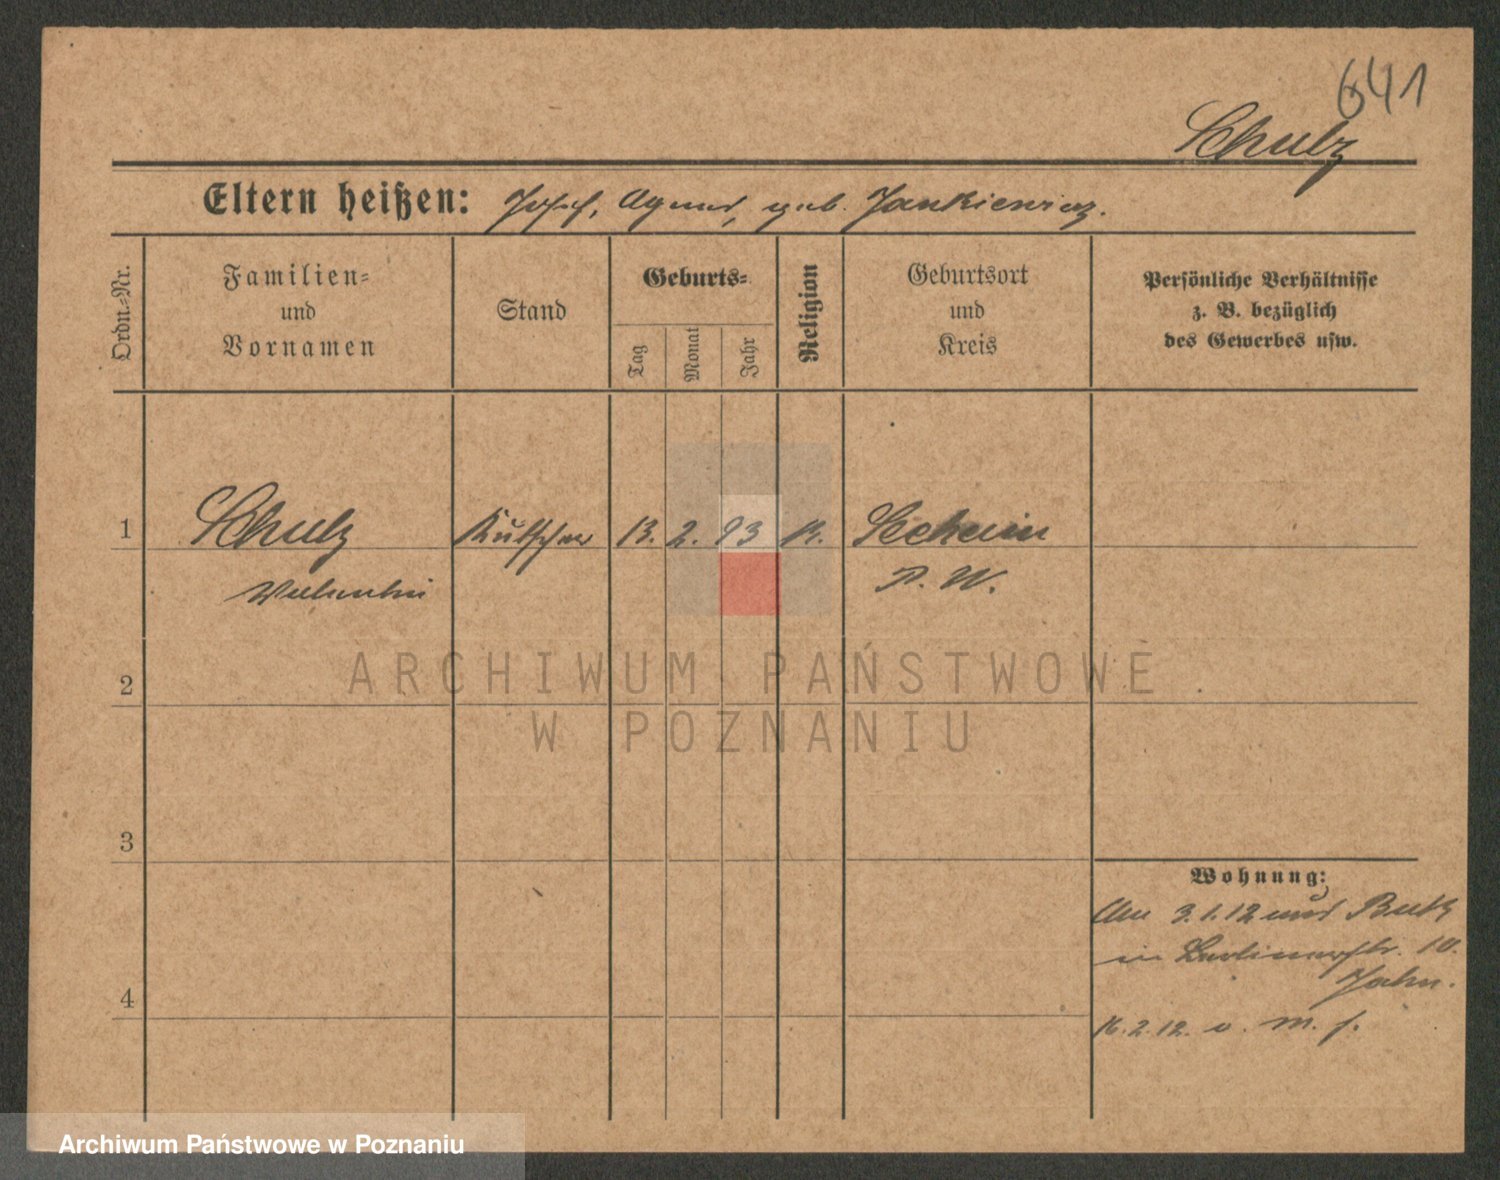 641
Schulz
Eltern heißen: Josef, Agnes, geb. Jankiewicz.
Ordn.-Nr.
Familien-
und
Vornamen
Stand
Geburts-
Tag
Monat
Jahr
Religion
Geburtsort
und
Kreis
Persönliche Verhältnisse
z. B. bezüglich
des Gewerbes usw.
1
Schulz
Valentin
Kutscher
13. 2. 93
K.
P. W.
2
ARCHIWUM PAŃSTWOWE
W POZNANIU
3
4
Wohnung:
Am 3.1.12 aus
in Berlinerstr. 10.
Jahn.
16.2.12.
Archiwum Państwowe w Poznaniu